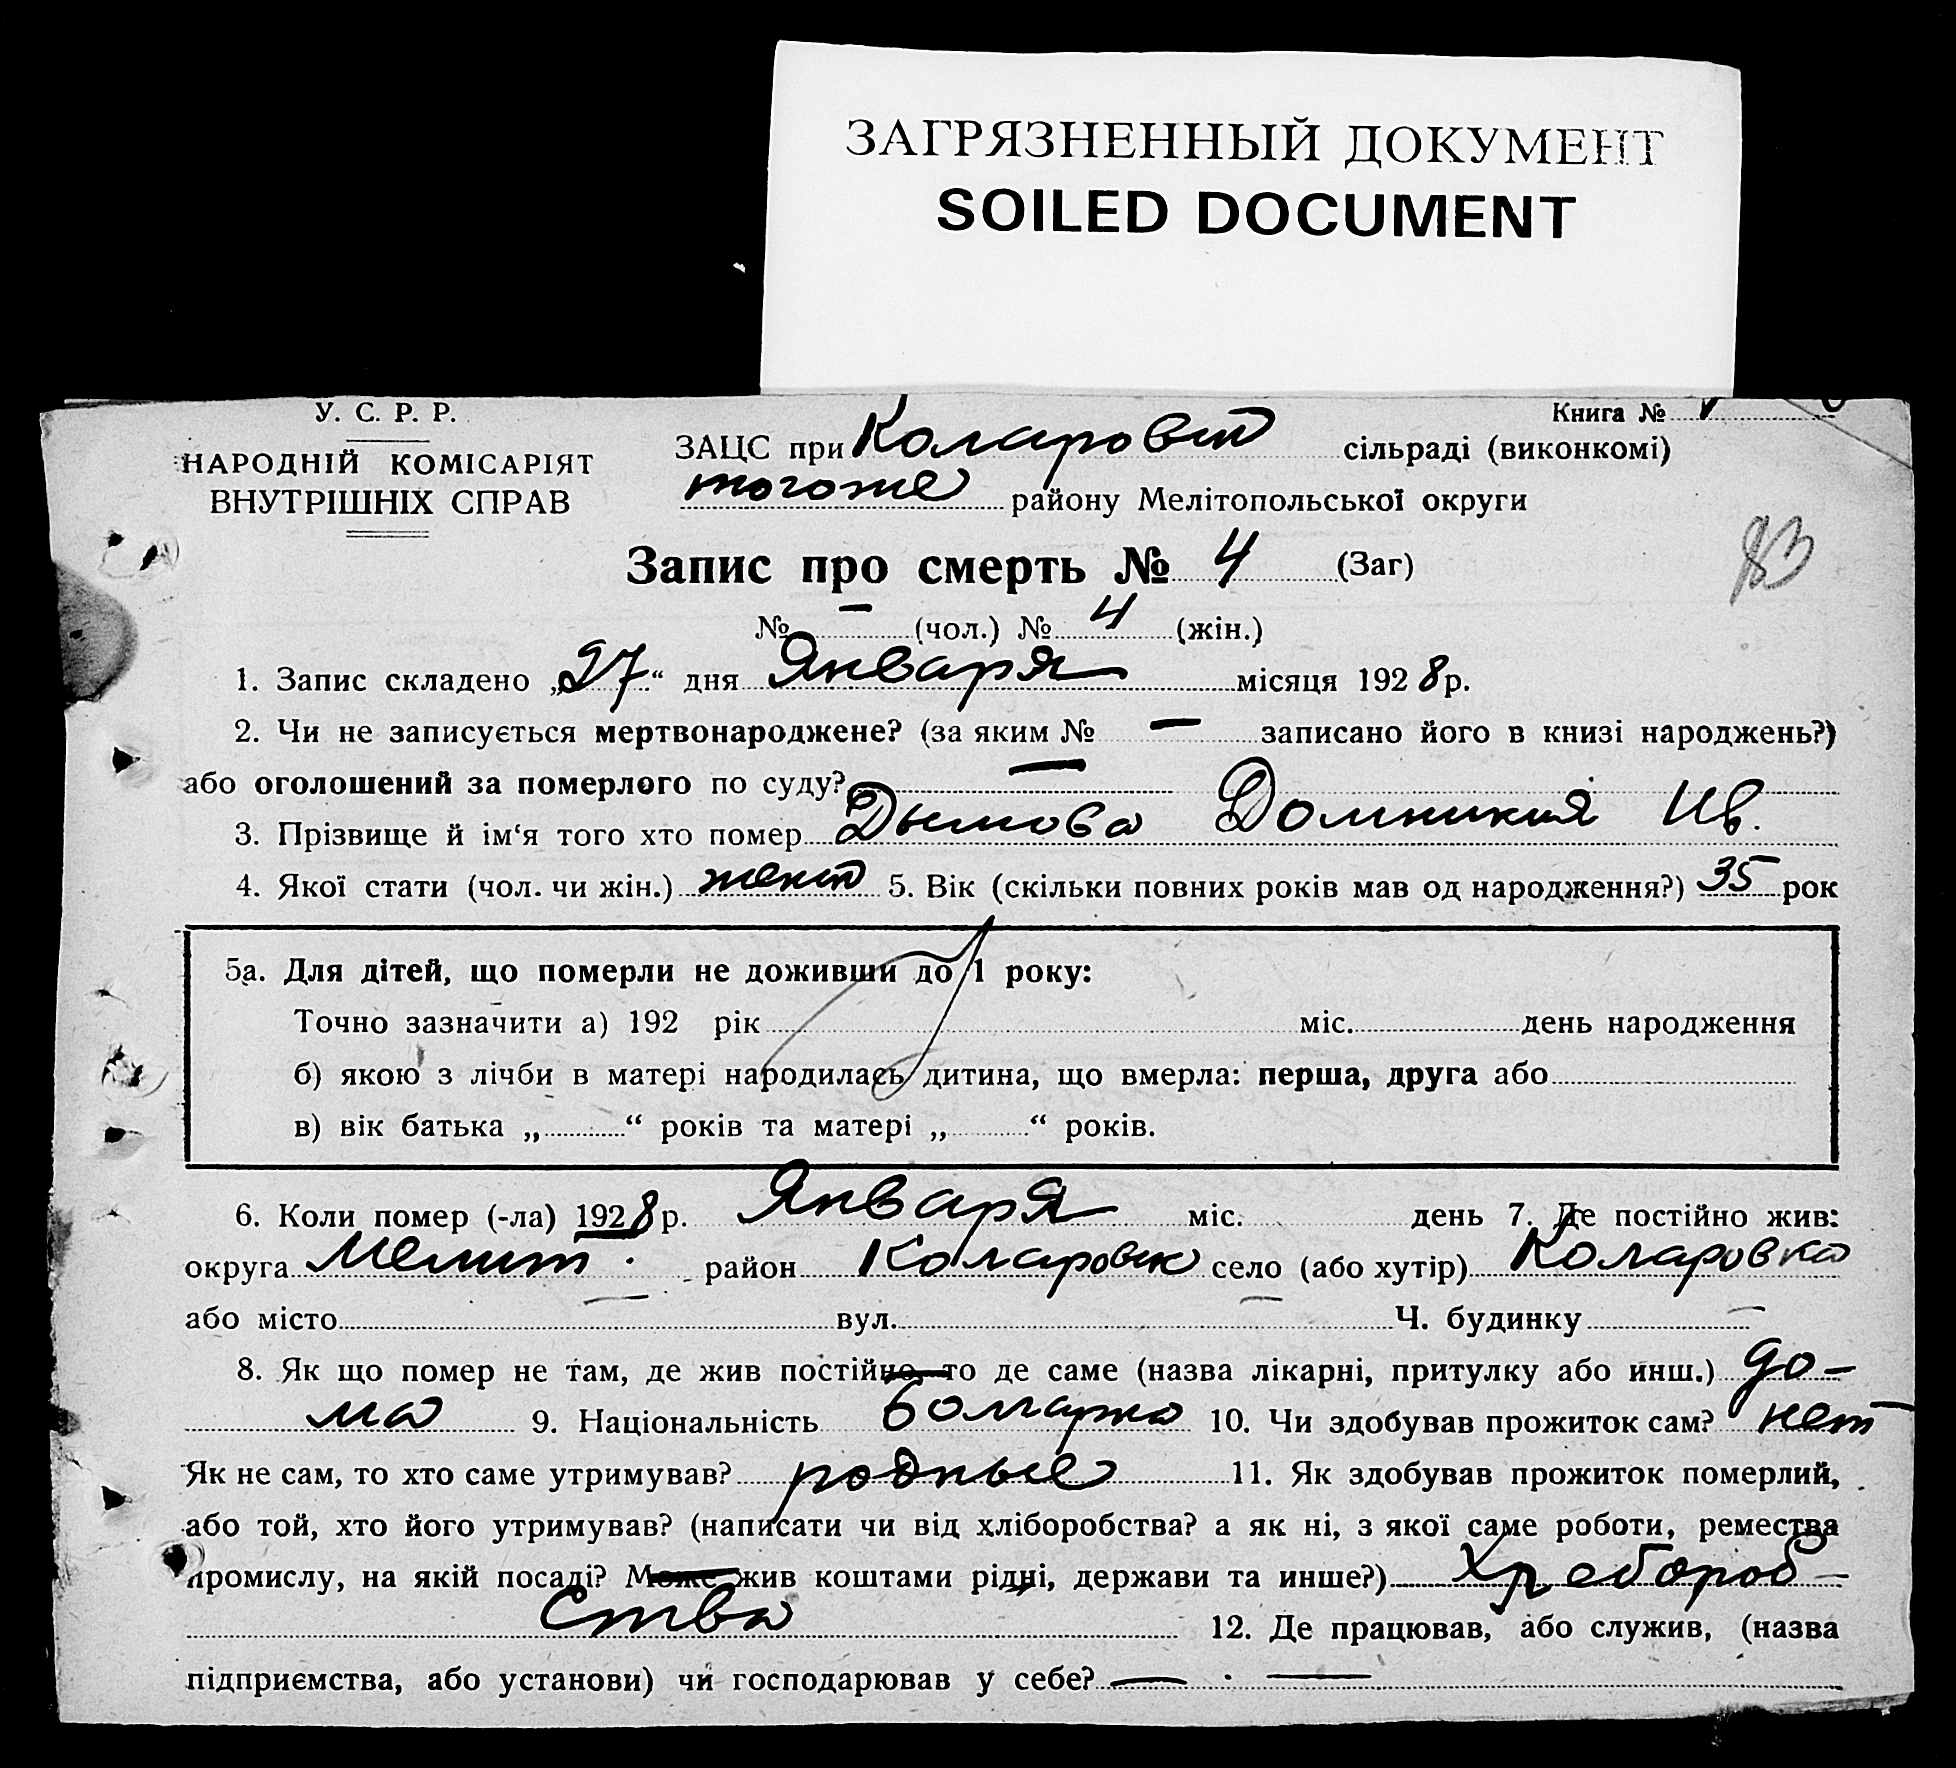 ЗАГРЯЗНЕННЫЙ ДОКУМЕНТ
SOILED DOCUMENT
У. С. Р. Р.
НАРОДНІЙ КОМІСАРІЯТ
ВНУТРІШНІХ СПРАВ
Книга №
ЗАЦС при Коларовск сільраді (виконкомі)
тогоже району Мелітопольської округи
Запис про смерть № 4 (Заг)
83
№ — (чол.) № 4 (жін.)
1. Запис складено „27“ дня Января місяця 1928 р.
2. Чи не записується мертвонароджене? (за яким № — записано його в книзі народжень?)
або оголошений за померлого по суду? —
3. Прізвище й ім‘я того хто помер Дымова Домникия Ив.
4. Якої стати (чол. чи жін.) женск 5. Вік (скільки повних років мав од народження?) 35 рок
5а. Для дітей, що померли не доживши до 1 року:
Точно зазначити а) 192 рік міс. день народження
б) якою з лічби в матері народилась дитина, що вмерла: перша, друга або
в) вік батька „ “ років та матері „ “ років.
6. Коли помер (-ла) 1928 р. Января міс. день 7. Де постійно жив:
округа Мелит. район Коларовск село (або хутір) Коларовка
або місто — вул. — Ч. будинку —
8. Як що помер не там, де жив постійно, то де саме (назва лікарні, притулку або инш.) до-
ма 9. Національність болгарка 10. Чи здобував прожиток сам? нет
Як не сам, то хто саме утримував? родные 11. Як здобував прожиток померлий,
або той, хто його утримував? (написати чи від хліборобства? а як ні, з якої саме роботи, ремества
промислу, на якій посаді? Може жив коштами рідні, держави та инше?) Хлебороб-
ства 12. Де працював, або служив, (назва
підприємства, або установи) чи господарював у себе? — —